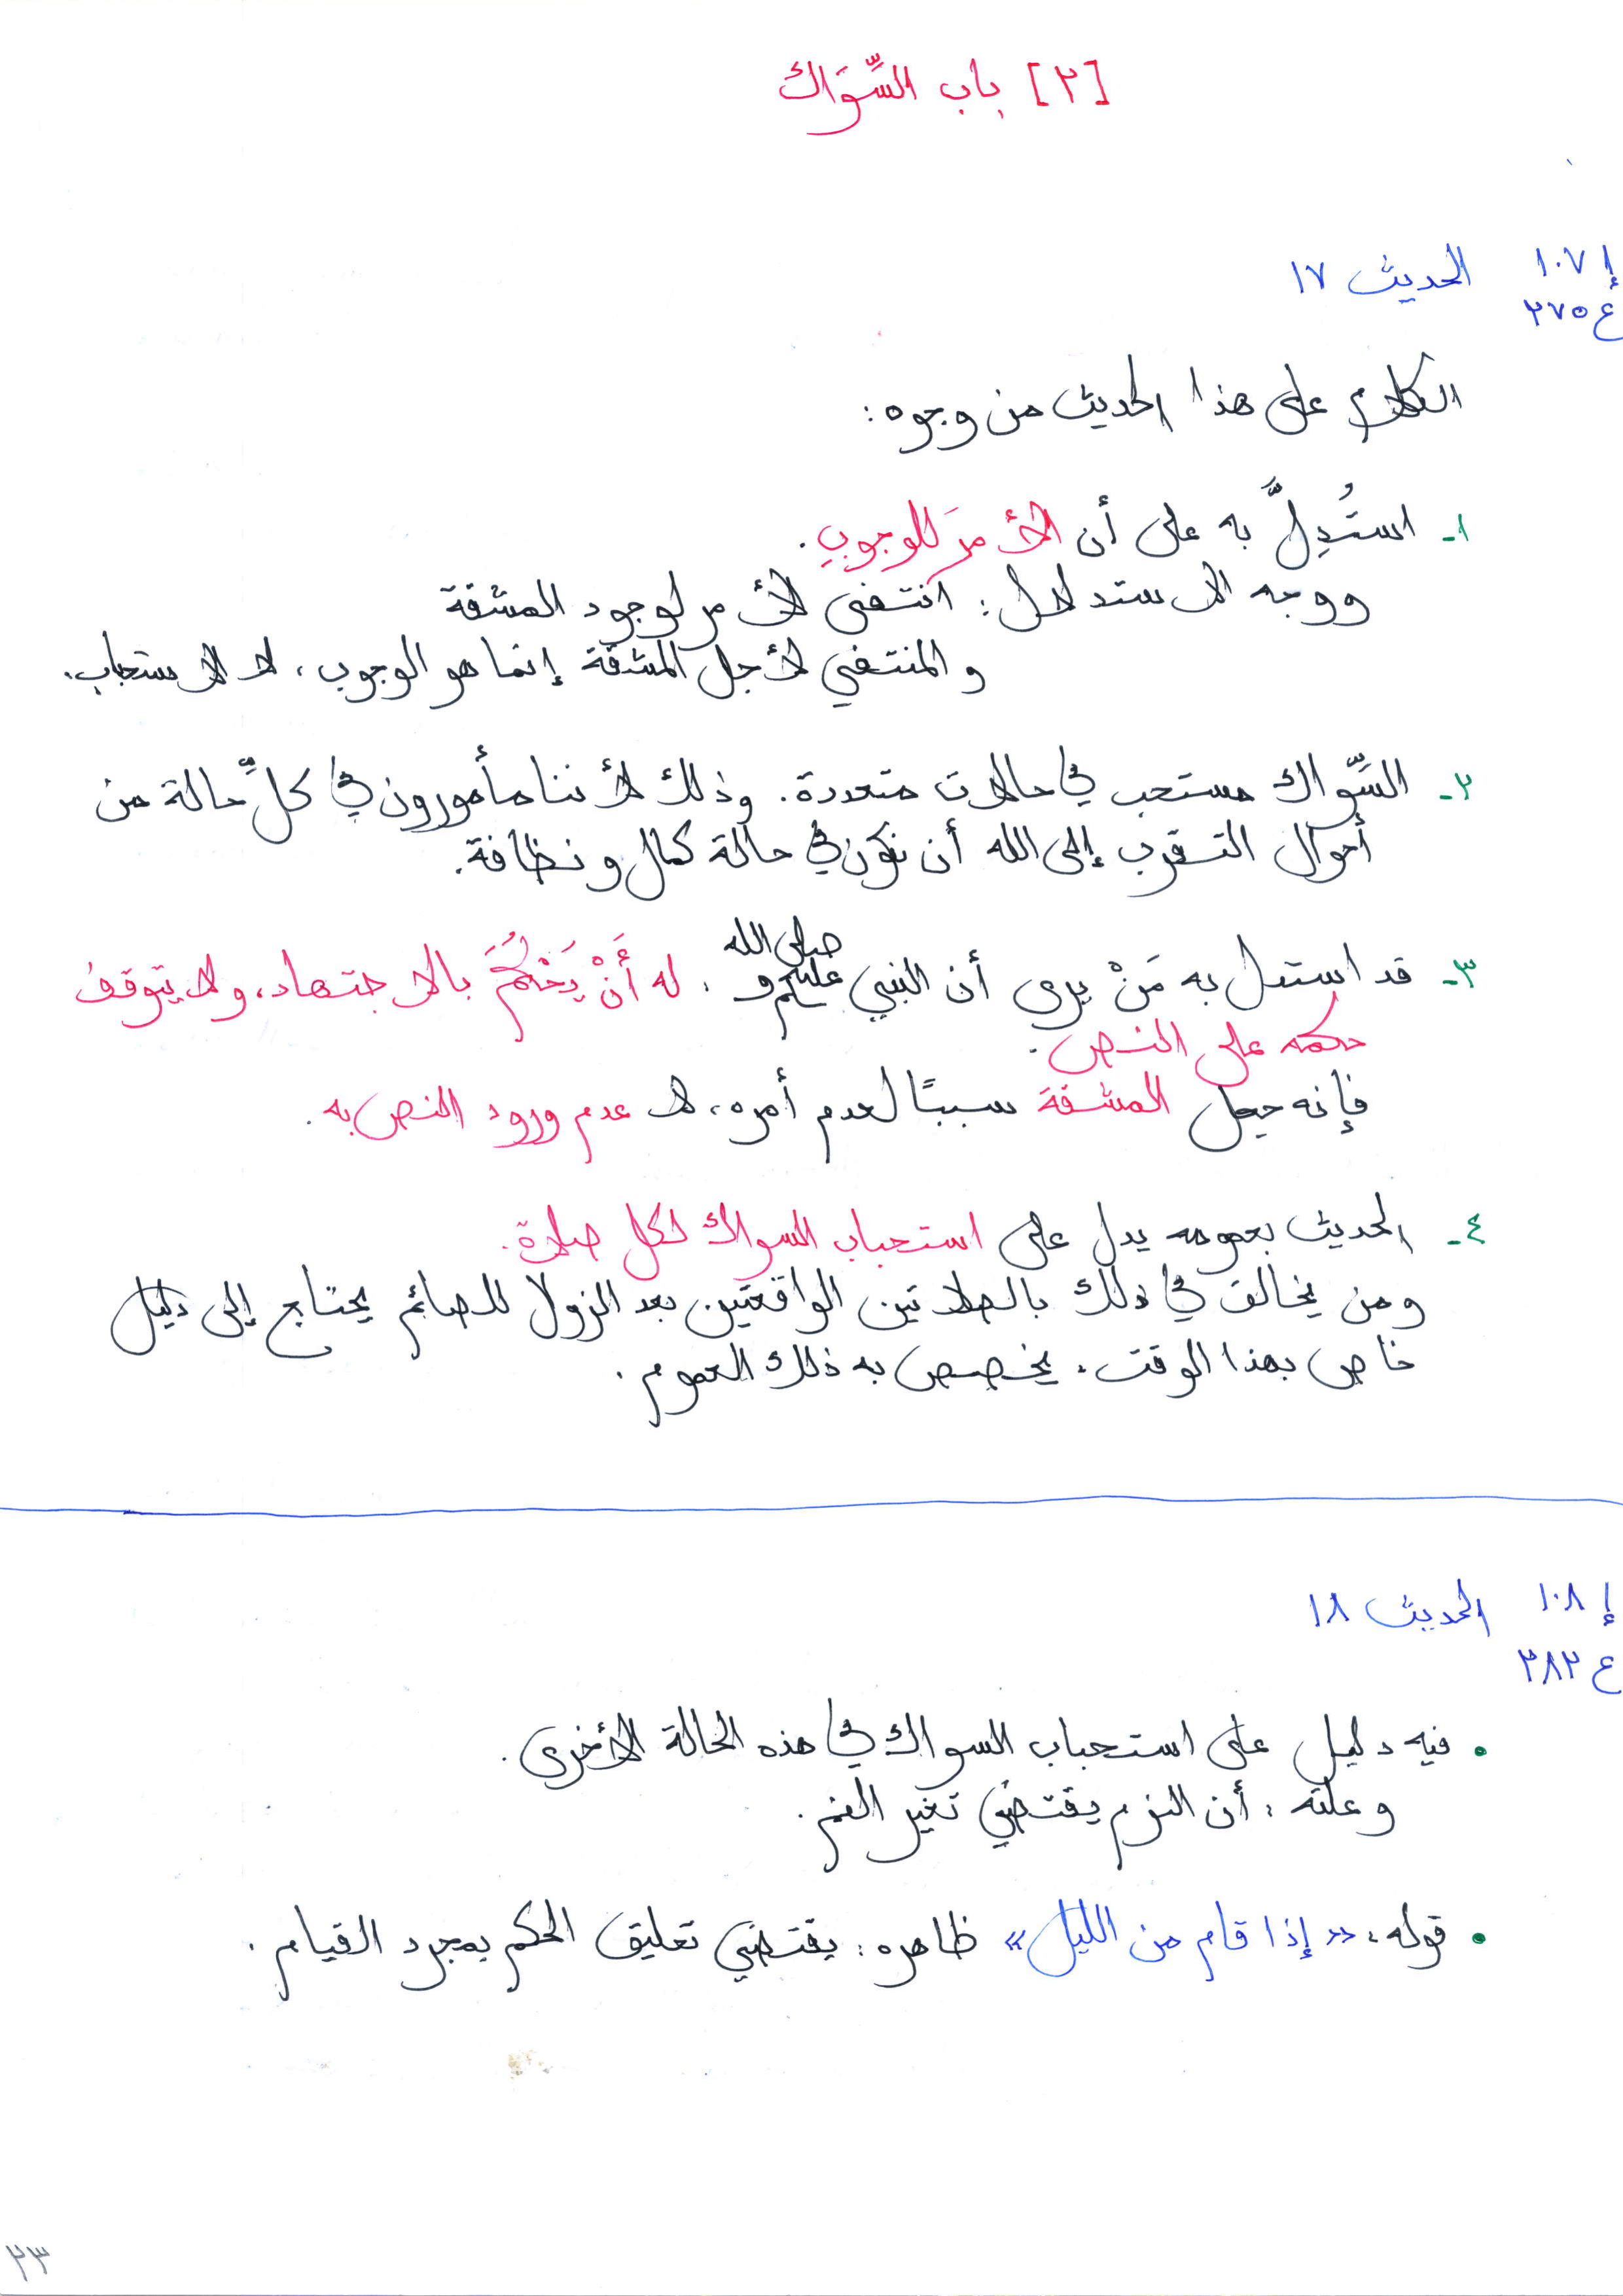 [٢] باب السِّوَاك
إ ١٠٧ الحديث ١٧
ع ٢٧٥
الكلام على هذا الحديث من وجوه:
١- استُدِلَّ به على أن الأمرَ للوجوب.
ووجه الاستدلال: انتفى الأمر لوجود المشقة
والمنتفي لأجل المشقة إنما هو الوجوب، لا الاستحباب.
٢- السِّواك مستحب في حالات متعددة. وذلك لأننا مأمورون في كلِّ حالة من
أحوال التقرب إلى الله أن نكون في حالة كمال ونظافة.
٣- قد استدل به مَنْ يرى أن النبي صلى الله عليه وسلم، له أَنْ يَحْكُمَ بالاجتهاد، ولا يتوقف
حكمه على النص.
فإنه جعل المشقة سببًا لعدم أمره، لا عدم ورود النص به.
٤- الحديث بعمومه يدل على استحباب السواك لكل صلاة.
ومن يخالف في ذلك بالصلاتين الواقعتين بعد الزوال للصائم يحتاج إلى دليل
خاص بهذا الوقت، يخصص به ذلك العموم.
إ ١٠٨ الحديث ١٨
ع ٢٨٢
• فيه دليل على استحباب السواك في هذه الحالة الأخرى.
وعلته: أن النوم يقتضي تغير الفم.
• قوله: «إذا قام من الليل» ظاهره: يقتضي تعليق الحكم بمجرد القيام.
٢٣